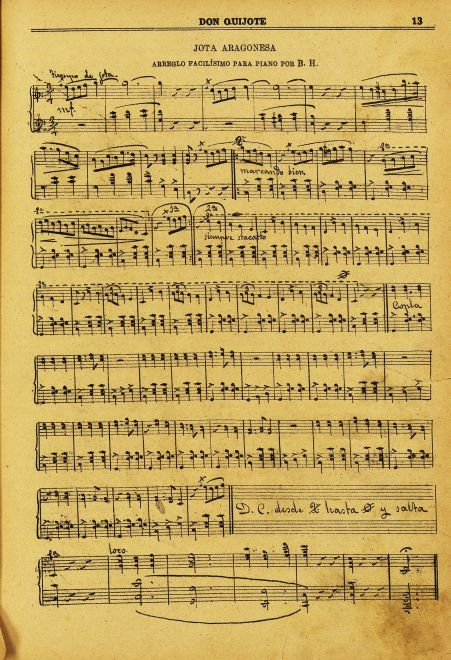 DON QUIJOTE 13
JOTA ARAGONESA
ARREGLO FACILÍSIMO PARA PIANO POR B. H.
Tiempo de jota.
mf.
8a
marcando bien
8a
8a 1a 2a
siempre stacatto
8a
Copla
D. C. desde 𝄋 hasta 𝄌 y salta
8a loco